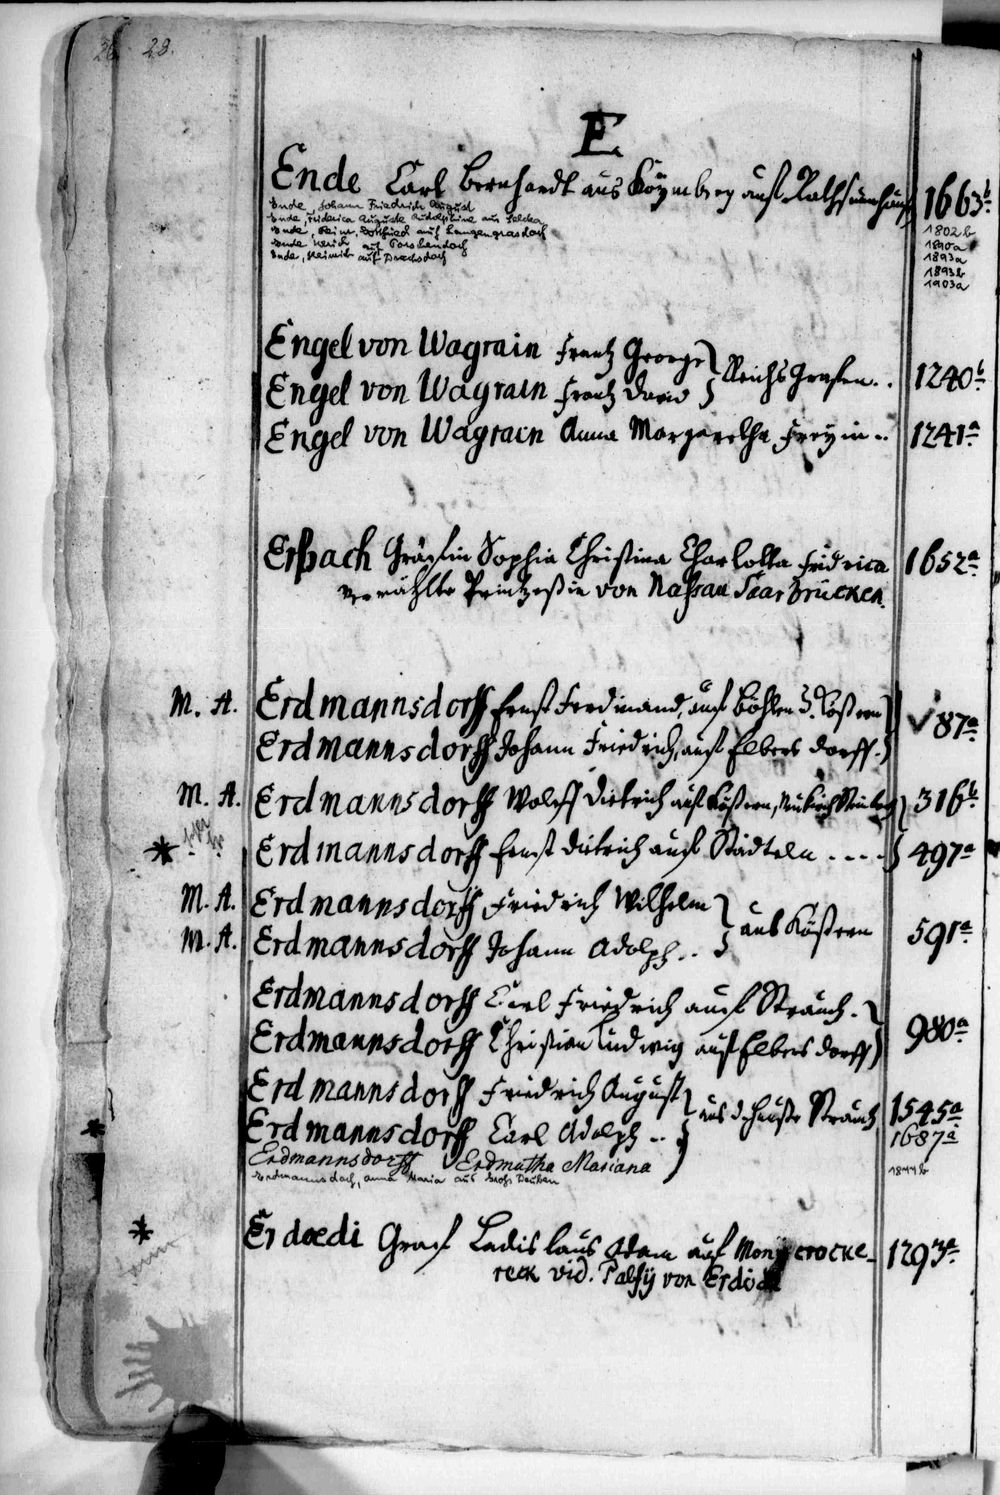 28.
E
Ende Carl Bernhardt aus Köÿmberg auf 1663b
Ende, Johann Friedrich August 1802b
Ende, Friderica Auguste Adolphine aus Selcka 1890a
Ende, Heinr. Gottfried auf Langengrasdorf 1893a
Ende auf 1893b
Ende, Heinrich auf 1903a
Engel von Wagrain Frantz George } Reichs Grafen..
Engel von Wagrain Frantz David } 1240b
Engel von Wagrain Anna Margaretha Freyin.. 1241a
Erbach Gräfin Sophia Christina Charlotta Fridrica 1652a
Vermählte Printzeßin von Naßau Saarbrücken.
M. A. Erdmannsdorff Ernst Ferdinand, auf Böhlen
Erdmannsdorff Johann Friedrich, auf Elbersdorff. } 87a
M. A. Erdmannsdorff Wolff Dietrich auf Kößern, } 316b
* Erdmannsdorff Ernst Dietrich auf Städteln .... } 497a
M. A. Erdmannsdorff Friedrich Wilhelm } aus Kößern 591a
M. A. Erdmannsdorff Johann Adolph.. }
Erdmannsdorff Carl Friedrich auf Strauch. }
Erdmannsdorff Christian Ludwig auf Elbersdorff } 980a
Erdmannsdorff Friedrich August } aus d. Hauße Strauch 1545a
* Erdmannsdorff Carl Adolph .. } 1687a
Erdmannsdorff Erdmutha Mariana
Erdmannsdorf, Anna Maria aus Groß Deuben 1844b
* Erdoedi Graf Ladislaus Adam auf Monyerocke- 1293a
reck vid. Palfÿ von Erdöd